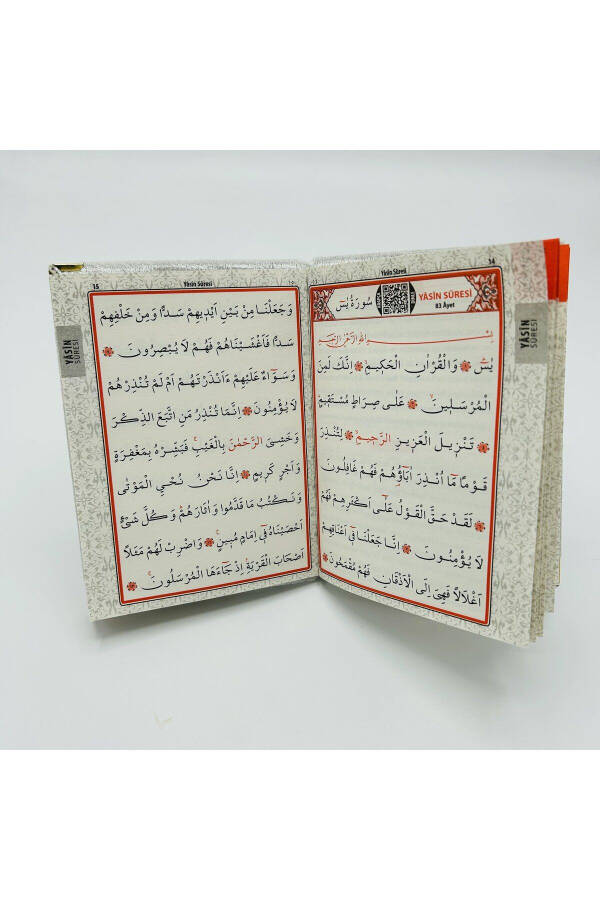 14
Yâsîn Sûresi
YÂSİN SÛRESİ
83 Âyet
سُورَةُ يٰسٓ
YÂSİN
SÛRESİ
بِسْمِ اللّٰهِ الرَّحْمٰنِ الرَّحِيمِ
يٰسٓ ۞ وَالْقُرْاٰنِ الْحَكِيمِۙ ۞ اِنَّكَ لَمِنَ
الْمُرْسَلِينَۙ ۞ عَلٰى صِرَاطٍ مُسْتَقِيمٍۜ
۞ تَنْزِيلَ الْعَزِيزِ الرَّحِيمِۙ ۞ لِتُنْذِرَ
قَوْمًا مَٓا اُنْذِرَ اٰبَٓاؤُ۬هُمْ فَهُمْ غَافِلُونَ
۞ لَقَدْ حَقَّ الْقَوْلُ عَلٰٓى اَكْثَرِهِمْ فَهُمْ
لَا يُؤْمِنُونَ ۞ اِنَّا جَعَلْنَا فِٓي اَعْنَاقِهِمْ
اَغْلَالًا فَهِيَ اِلَى الْاَذْقَانِ فَهُمْ مُقْمَحُونَ ۞
15
Yâsîn Sûresi
YÂSİN
SÛRESİ
وَجَعَلْنَا مِنْ بَيْنِ اَيْدِيهِمْ سَدًّا وَمِنْ خَلْفِهِمْ
سَدًّا فَاَغْشَيْنَاهُمْ فَهُمْ لَا يُبْصِرُونَ ۞
وَسَوَٓاءٌ عَلَيْهِمْ ءَاَنْذَرْتَهُمْ اَمْ لَمْ تُنْذِرْهُمْ
لَا يُؤْمِنُونَ ۞ اِنَّمَا تُنْذِرُ مَنِ اتَّبَعَ الذِّكْرَ
وَخَشِيَ الرَّحْمٰنَ بِالْغَيْبِۚ فَبَشِّرْهُ بِمَغْفِرَةٍ
وَاَجْرٍ كَرِيمٍ ۞ اِنَّا نَحْنُ نُحْيِ الْمَوْتٰى
وَنَكْتُبُ مَا قَدَّمُوا وَاٰثَارَهُمْۜ وَكُلَّ شَيْءٍ
اَحْصَيْنَاهُ فِٓي اِمَامٍ مُبِينٍ۟ ۞ وَاضْرِبْ لَهُمْ مَثَلًا
اَصْحَابَ الْقَرْيَةِۢ اِذْ جَٓاءَهَا الْمُرْسَلُونَۚ ۞